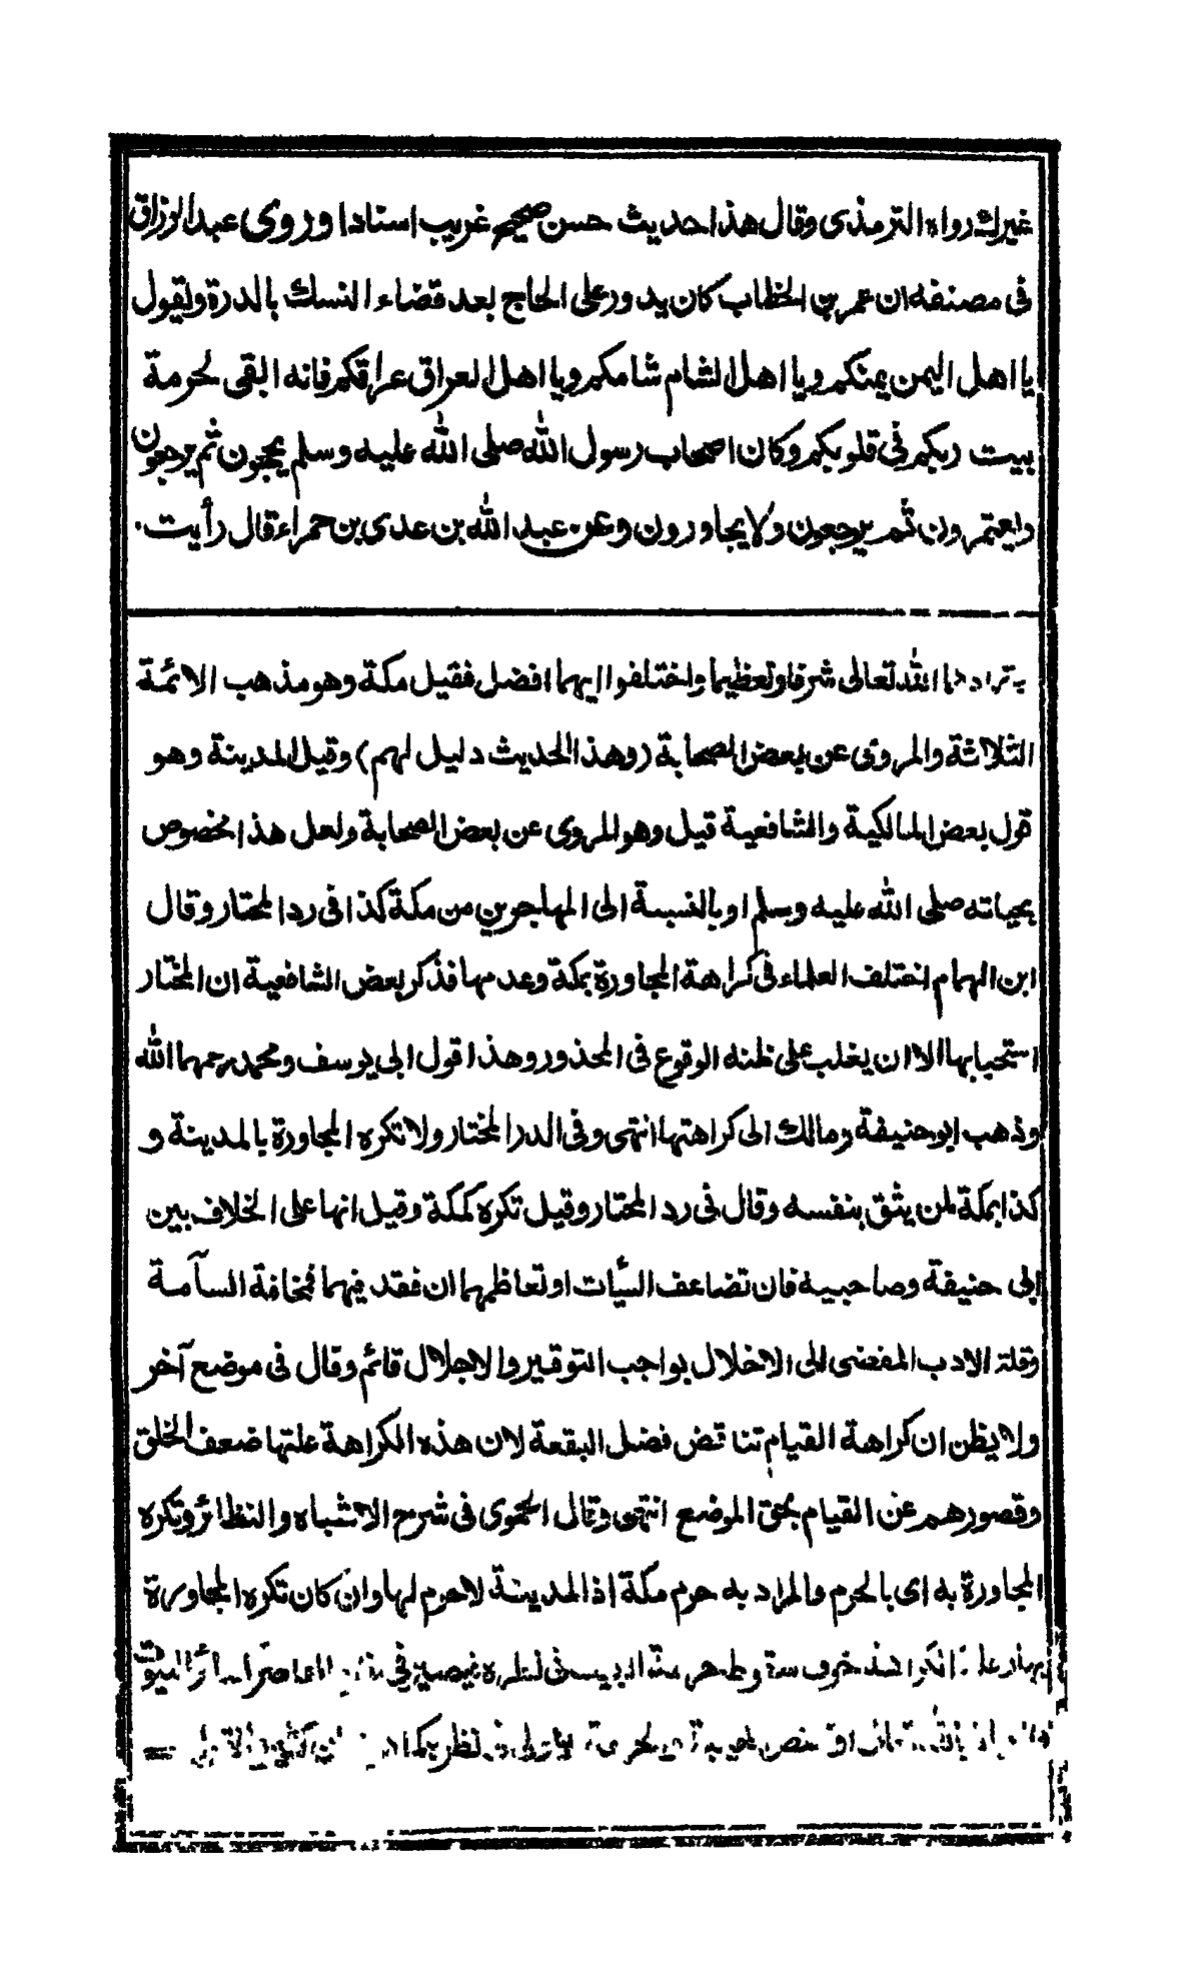 غيرك رواه الترمذى وقال هذا حديث حسن صحيح غريب اسنادا وروى عبد الرزاق
فى مصنفه ان عمر بن الخطاب كان يدور على الحاج بعد قضاء النسك بالدرة ويقول
يا اهل اليمن يمنكم ويا اهل الشام شامكم ويا اهل العراق عراقكم فانه ابقى لحرمة
بيت ربكم فى قلوبكم وكان اصحاب رسول الله صلى الله عليه وسلم يحجون ثم يرجعون
ويعتمرون ثم يرجعون ولا يجاورون وعن عبد الله بن عدى بن حمراء قال رأيت
الله تعالى شرفا وتعظيما واختلفوا ايهما افضل فقيل مكة وهو مذهب الائمة
الثلاثة والمروى عن بعض الصحابة (وهذا الحديث دليل لهم) وقيل المدينة وهو
قول بعض المالكية والشافعية قيل وهو المروى عن بعض الصحابة ولعل هذا مخصوص
بحياته صلى الله عليه وسلم او بالنسبة الى المهاجرين من مكة كذا فى رد المحتار وقال
ابن الهمام اختلف العلماء فى كراهة المجاورة بمكة وعدمها فذكر بعض الشافعية ان المختار
استحبابها الا ان يغلب على ظنه الوقوع فى المحذور وهذا قول ابى يوسف ومحمد رحمهما الله
وذهب ابو حنيفة ومالك الى كراهتها انتهى وفى الدر المختار ولا تكره المجاورة بالمدينة و
كذا بمكة لمن يثق بنفسه وقال فى رد المحتار وقيل تكره كمكة وقيل انها على الخلاف بين
ابى حنيفة وصاحبيه فان تضاعف السيّات او تعاظمهما ان فقد فيهما فمخافة السآمة
وقلة الادب المفضى الى الاخلال بواجب التوقير والاجلال قائم وقال فى موضع آخر
ولا يظن ان كراهة القيام تناقض فضل البقعة لان هذه الكراهة علتها ضعف الخلق
وقصورهم عن القيام بحق الموضع انتهى وقال الحموى فى شرح الاشباه والنظائر وتكره
المجاورة به اى بالحرم والمراد به حرم مكة اذ المدينة لا حرم لها وان كان تكره المجاورة